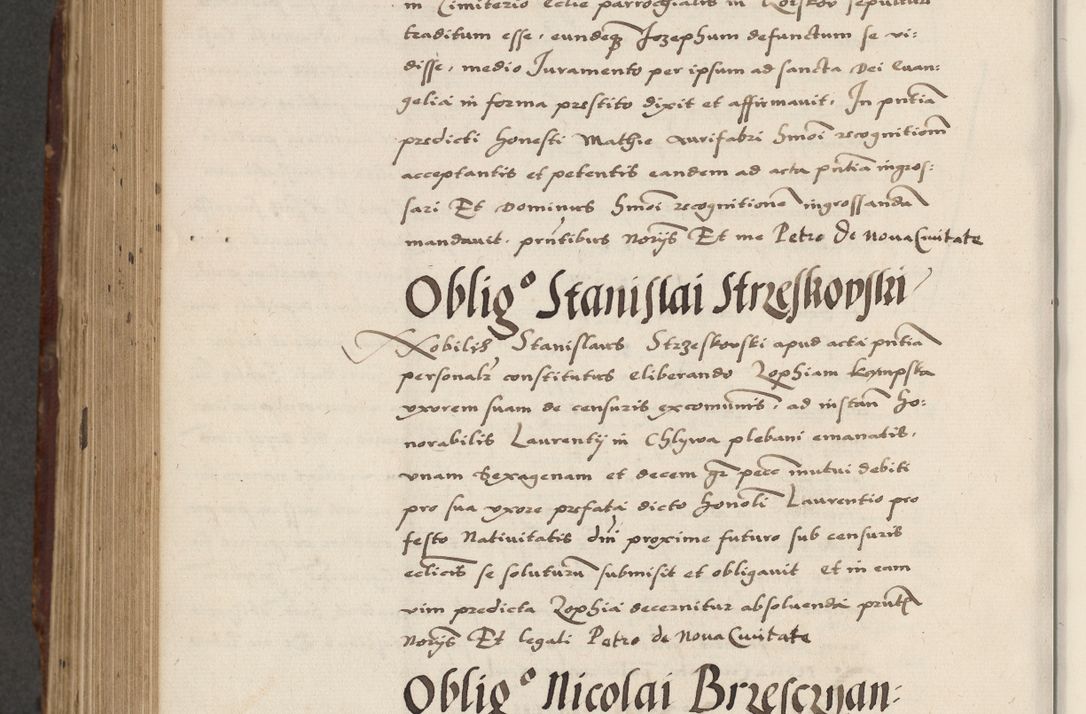 in Cimiterio Eclie parrochialis in sepulture
traditum esse, eundeqz Jozephum defunctum se vi:
disse, medio Juramento per ipsum ad sancta Dei Euan:
gelia in forma prestito dixit et affirmauit. In pntia
predicti honesti Mathie Aurifabri hmoi recognitiom
acceptantis et petentis eandem ad acta pntia ingros:
sari Et Dominus hmoi recognitione ingrossanda
mandauit. pntibus Norijs Et me Petro de Noua Ciuitate
Oblig° Stanislai Strzeskovski
Nobilis Stanislaus Strzeskovski apud acta pntia
personalr constitutus eliberando Zophiam
vxorem suam de censuris excomunis, ad instan ho:
norabilis Laurentij in Chlywa plebani emanatis,
vnam sexagenam et decem gr pecc mutui debiti
pro sua vxore prefata dicto honoli Laurentio pro
festo Natiuitatis dni proxime futuro sub censuris
eclicis se soluturu submisit et obligauit et in eam
vim predicta Zophia decernitur absoluenda pntt
Norijs Et legali Petro de Noua Ciuitate
Oblig° Nicolai Brzesczyan: